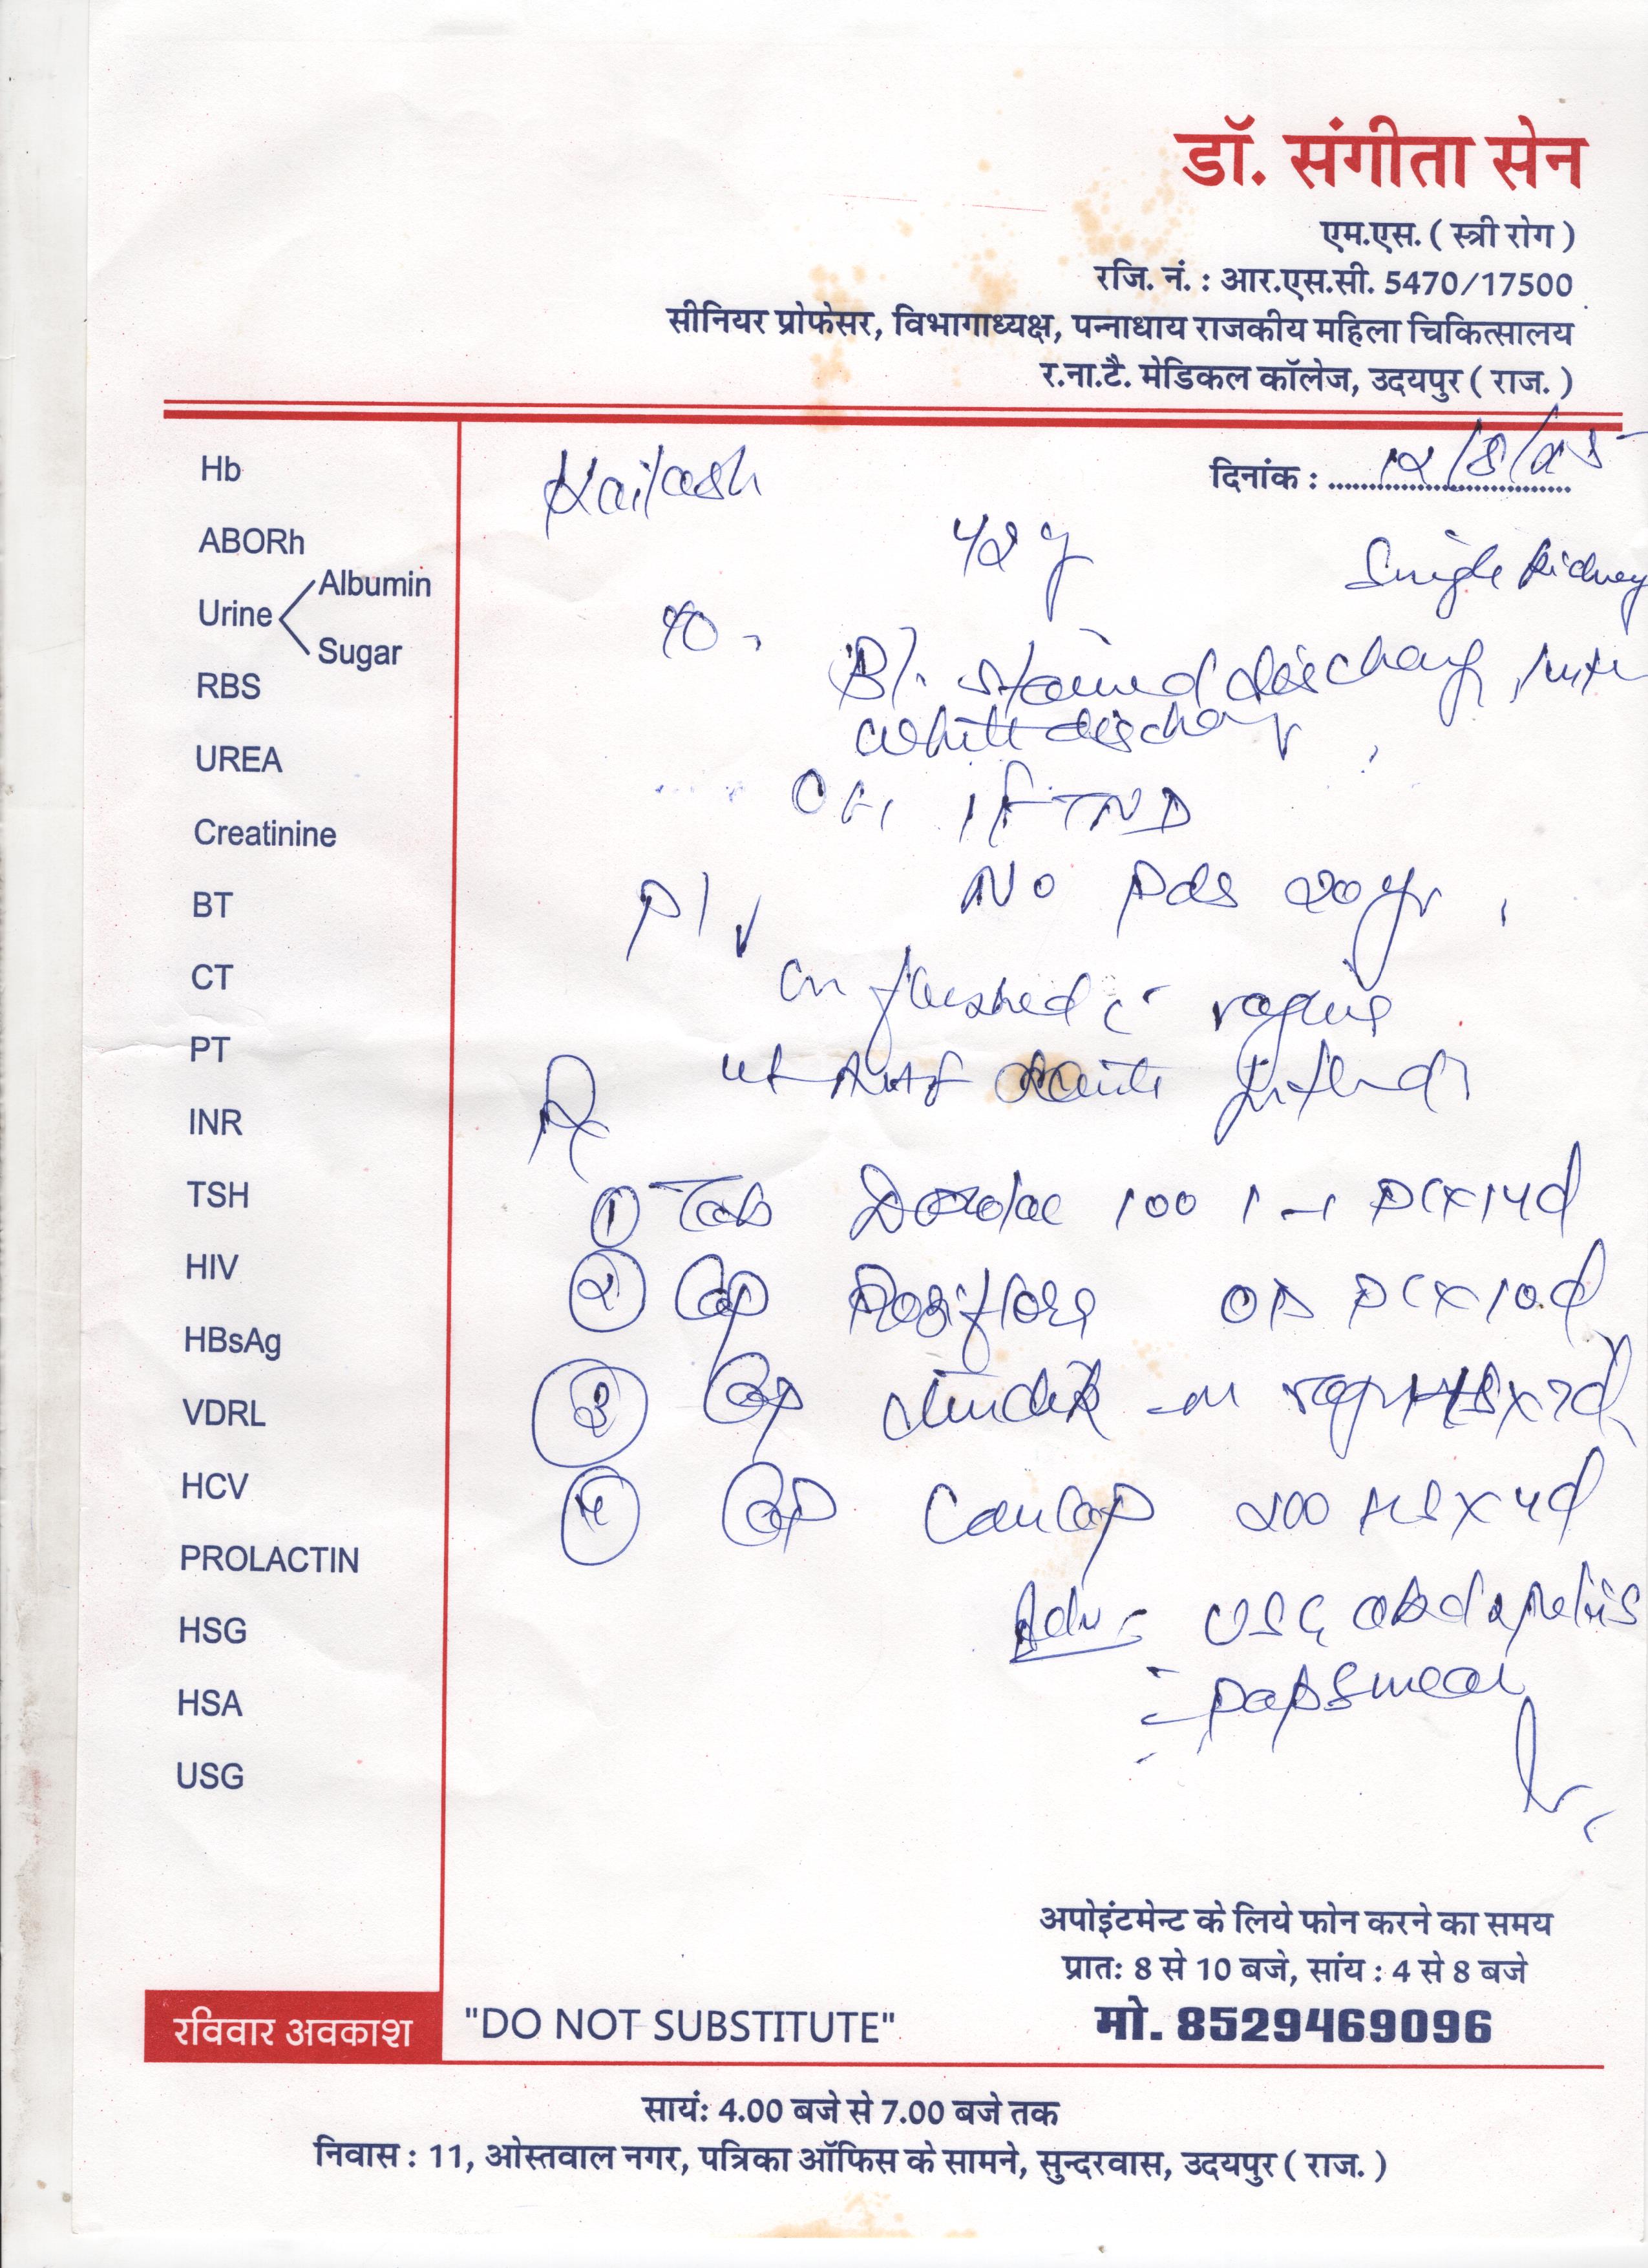 डॉ. संगीता सेन
एम.एस. ( स्त्री रोग )
रजि. नं. : आर.एस.सी. 5470/17500
सीनियर प्रोफेसर, विभागाध्यक्ष, पन्नाधाय राजकीय महिला चिकित्सालय
र.ना.टै. मेडिकल कॉलेज, उदयपुर ( राज. )
दिनांक : 12/8/25
Kailash
42 y
Single Kidney
Bl. stained discharge,
white discharge
OH, 1 FTND
No Pds 20 yr
P/V
Cx flushed c vagina
Rx
ut
① Tab 100 1-1 PC x 14d
② Cap OD PC x 10d
③ Cap HS x 7d
④ Cap Cancap 200 HS x 4d
Adv - USG abd & pelvis
- papsmear
Hb
ABORh
Urine
Albumin
Sugar
RBS
UREA
Creatinine
BT
CT
PT
INR
TSH
HIV
HBsAg
VDRL
HCV
PROLACTIN
HSG
HSA
USG
अपोइंटमेन्ट के लिये फोन करने का समय
प्रातः 8 से 10 बजे, सांय : 4 से 8 बजे
रविवार अवकाश
"DO NOT SUBSTITUTE"
मो. 8529469096
सायं: 4.00 बजे से 7.00 बजे तक
निवास : 11, ओस्तवाल नगर, पत्रिका ऑफिस के सामने, सुन्दरवास, उदयपुर ( राज. )